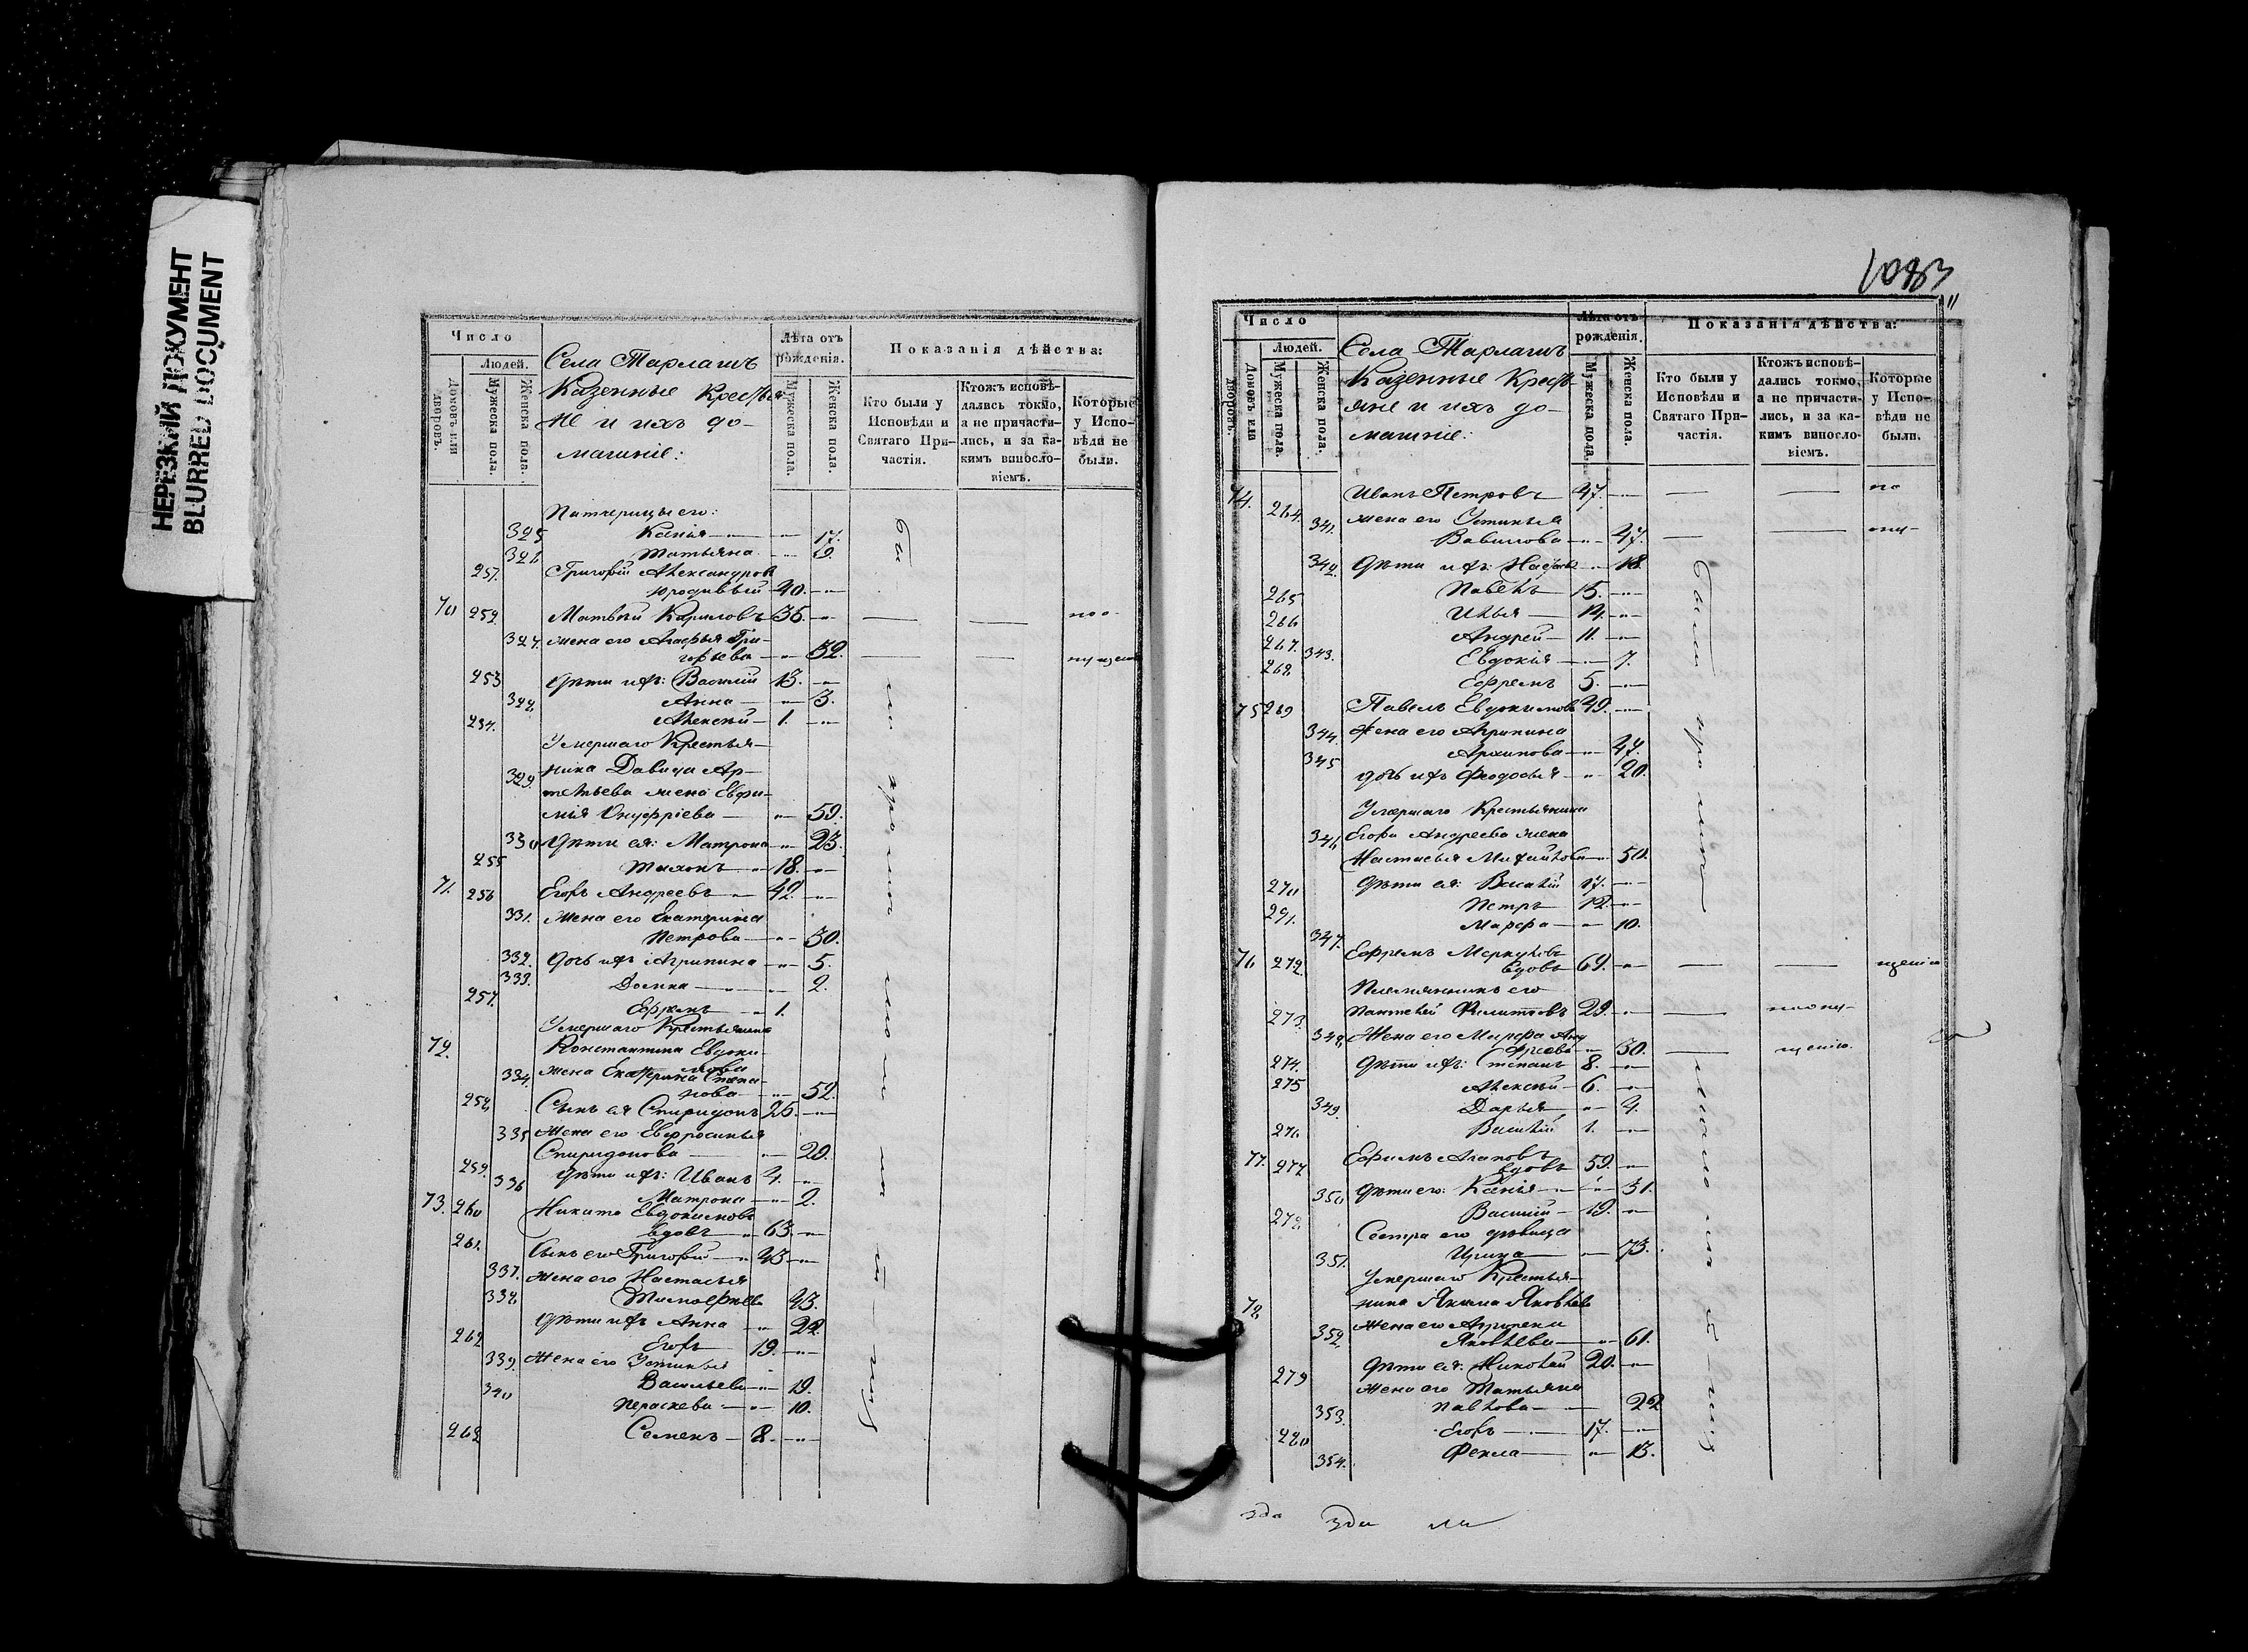 НЕРЕЗКИЙ ДОКУМЕНТ
BLURRED DOCUMENT
Число
Людей.
Домовъ или дворовъ.
Мужеска пола.
Женска пола.
Села Тарлагиъ
Казенные Крестья
не и ихъ до-
машніе:
Лѣта отъ рожденія.
Мужеска пола.
Женска пола.
Показанія дѣйства:
Кто были у Исповѣди и Святаго При-частія.
Ктожъ исповѣ-дались токмо, а не причасти-лись, и за ка-кимъ винесло-віемъ.
Которые у Испо-вѣди не были.
Патчерицы его:
325 Ксенія 17.
326 Татьяна 9.
257. Григорій Александровъ
юродивый 40.
70 252. Матвѣй Кариловъ 36.
327. жена его Агафья Гри-
горьева 32.
253 дѣти ихъ: Василій 13.
322. Анна 3.
254. Алексѣй 1.
Умершаго Крестья-
329. нина Давида Ар-
темьева жена Евфи-
мія Онуфріева 59.
330 дѣти ея: Матрона 23.
255 Тихонъ 18.
71. 256 Егоръ Андреевъ 42.
331. жена его Екатерина
Петрова 30.
332. дочь ихъ Агрипина 5.
333. Домна 2.
257. Ефремъ 1.
Умершаго Крестьянина
72. Константина Евдоки-
мова
334. жена Екатерина Степа-
нова 52.
258. Сынъ ея Спиридонъ 25.
335 жена его Евфросинья
Спиридонова 29.
259. дѣти ихъ: Иванъ 4.
336 Матрона 2.
73. 260 Никита Евдокимовъ
вдовъ 63.
261. Сынъ его Григорій 43
337. жена его Настасья
Тимофѣева 43.
338. дѣти ихъ Анна 22.
262 Егоръ 19.
339. жена его Устинья
Васильева 19.
340 Пераскева 10.
262 Семенъ 8.
1083
Число
Людей.
Домовъ или дворовъ.
Мужеска пола.
Женска пола.
Села Тарлагиъ
Казенные Кресть-
яне и ихъ до-
машніе:
Лѣта отъ рожденія.
Мужеска пола.
Женска пола.
Показанія дѣйства:
Кто были у Исповѣди и Святаго При-частія.
Ктожъ исповѣ-дались токмо, а не причасти-лись, и за ка-кимъ винесло-віемъ.
Которые у Испо-вѣди не были.
74. 264. Иванъ Петровъ 47. по
341. жена его Устинья
Вавилова 47.
342. дѣти ихъ: 18.
265 Павелъ 15.
266 Илья 14.
267. Андрей 11.
343. Евдокія 7.
268 Ефремъ 5.
75 269 Павелъ Евдокимовъ 49.
344. жена его Агрипина
Архипова 47.
345 дочь ихъ Феодосья 20.
Умершаго Крестьянина
346 Егора Андреева жена
Настасья Михайлова 50.
270 дѣти ея: Василій 17.
271. Петръ 12.
347. Марфа 10.
76 272. Ефремъ Меркуловъ
вдовъ 69. щенію
Племянникъ его
273. Пантелей Филиповъ 29. по опу-
348. Жена его Марфа Анд
реева 30. щенію.
274. дѣти ихъ: Степанъ 8.
275 Алексѣй 6.
349. Дарья 4.
276 Василій 1.
77. 277 Ефимъ Агаповъ
вдовъ 59.
350 дѣти его: Ксенія 31.
278. Василій 19.
Сестра его дѣвица
351. Ирина 73.
Умершаго Крестья-
78. нина Якима Яковлева
352. жена его
Яковлева 61.
279 дѣти ея: Николай 20.
жена его Татьяна
353. Павлова 22
280 Егоръ 17.
354. Фекла 13.